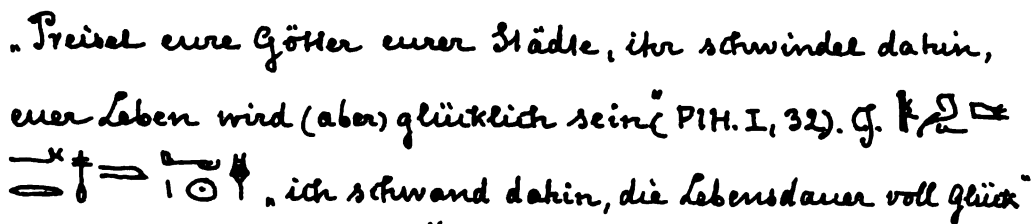 „Preiset eure Götter eurer Städte, ihr schwindet dahin,
euer Leben wird (aber) glücklich sein“ (PIH. I, 32). G.
„ich schwand dahin, die Lebensdauer voll Glück“